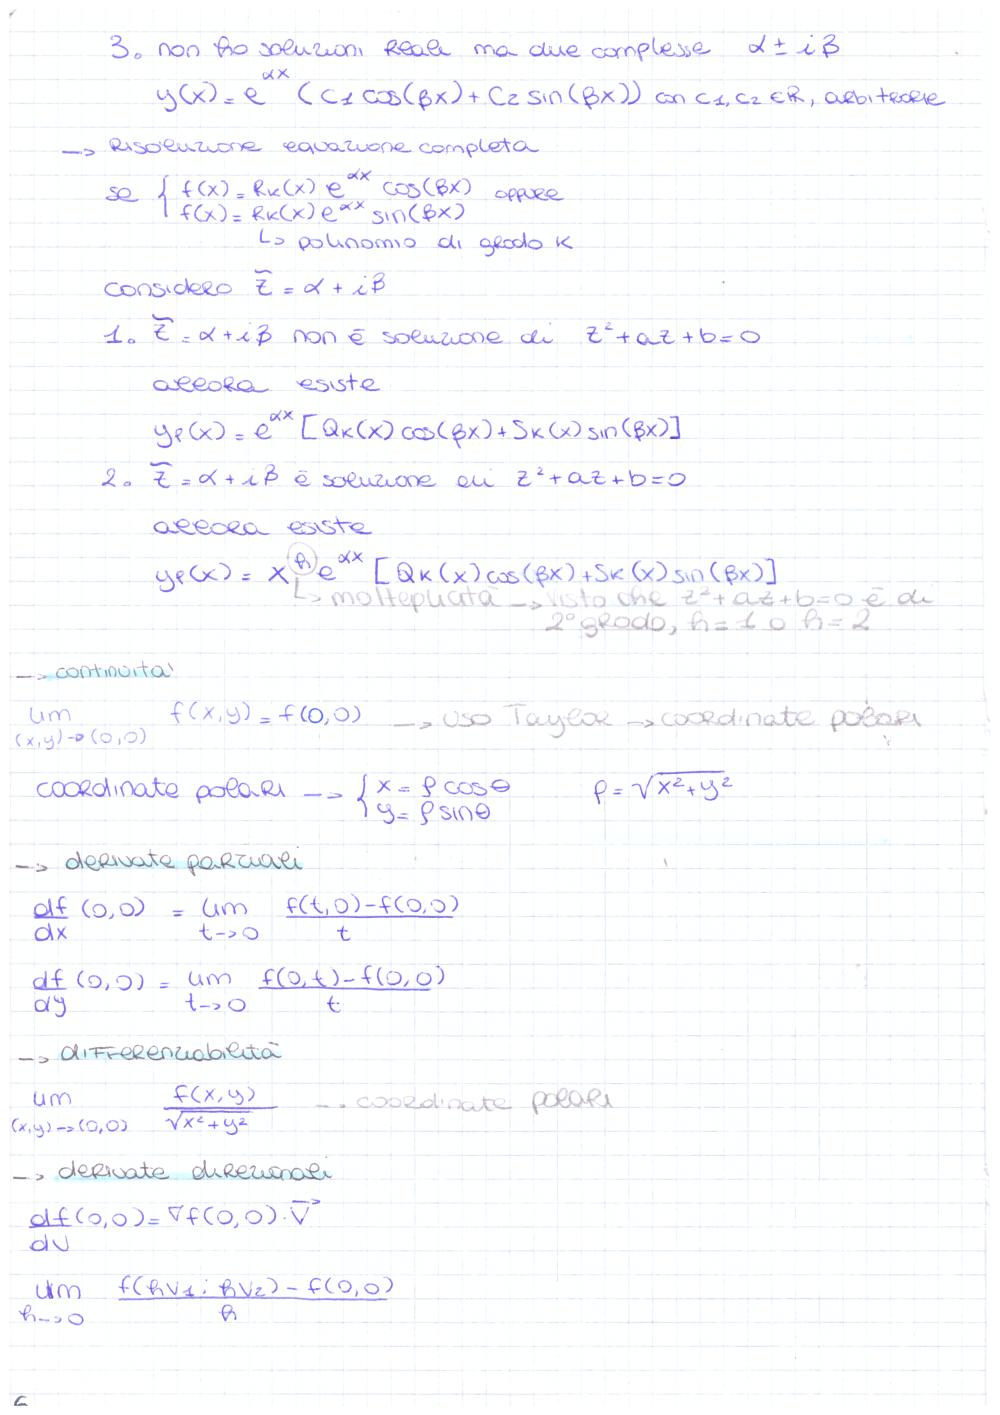 3. non ho soluzioni reali ma due complesse α ± iβ
y(x) = e^αx (c1 cos(βx) + c2 sin(βx)) con c1, c2 ∈ R, arbitrarie
-> Risoluzione equazione completa
se { f(x) = Rk(x) e^αx cos(βx) oppure
f(x) = Rk(x) e^αx sin(βx)
↳ polinomio di grado k
considero z̃ = α + iβ
1. z̃ = α + iβ non è soluzione di z² + az + b = 0
allora esiste
yp(x) = e^αx [Qk(x) cos(βx) + Sk(x) sin(βx)]
2. z̃ = α + iβ è soluzione di z² + az + b = 0
allora esiste
yp(x) = x^h e^αx [Qk(x) cos(βx) + Sk(x) sin(βx)]
↳ molteplicità -> visto che z² + az + b = 0 è di
2° grado, h = 1 o h = 2
-> continuità
lim f(x,y) = f(0,0) -> uso Taylor -> coordinate polari
(x,y) -> (0,0)
coordinate polari -> { x = ρ cosθ ρ = √x² + y²
y = ρ sinθ
-> derivate parziali
df (0,0) = lim f(t,0) - f(0,0)
dx t -> 0 t
df (0,0) = lim f(0,t) - f(0,0)
dy t -> 0 t
-> differenziabilità
lim f(x,y) -> coordinate polari
(x,y) -> (0,0) √x² + y²
-> derivate direzionali
df (0,0) = ∇f(0,0) · v⃗
dv
lim f(hv1; hv2) - f(0,0)
h -> 0 h
6